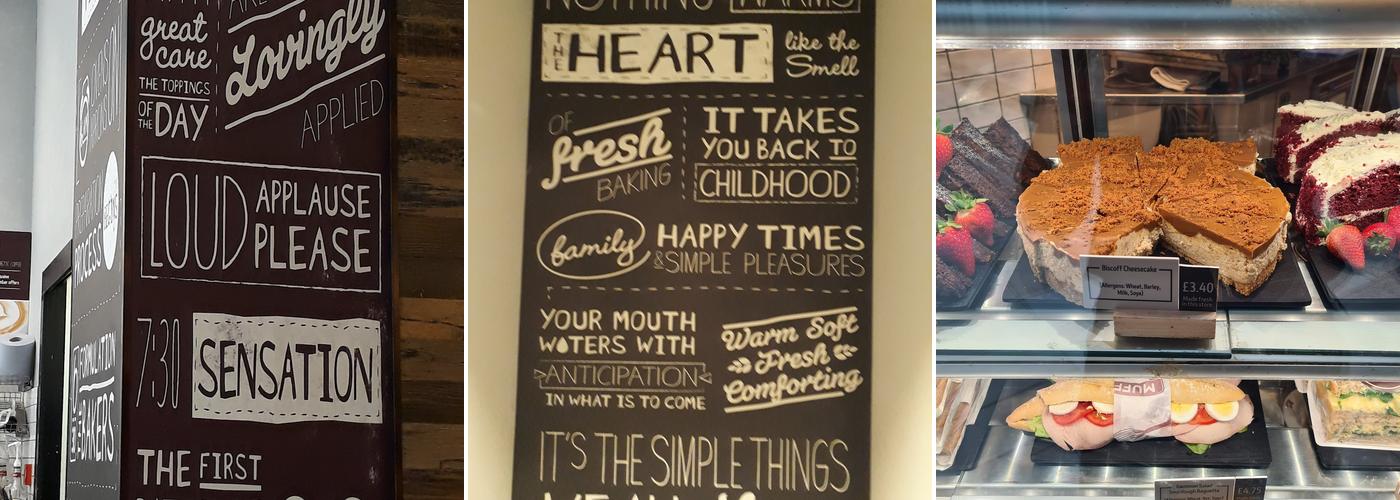 great
care
THE TOPPINGS
OF THE DAY
Lovingly
APPLIED
LOUD APPLAUSE
PLEASE
7:30 SENSATION
THE FIRST
PROCESS
FORMULATION
BAKERS
NOTHING WARMS
THE HEART like the
Smell
OF
fresh
BAKING
IT TAKES
YOU BACK TO
CHILDHOOD
family HAPPY TIMES
& SIMPLE PLEASURES
YOUR MOUTH
WATERS WITH
ANTICIPATION
IN WHAT IS TO COME
Warm Soft
Fresh
Comforting
IT'S THE SIMPLE THINGS
Biscoff Cheesecake
(Allergens: Wheat, Barley,
Milk, Soya)
£3.40
Made fresh
in this store
MUFF
£4.75